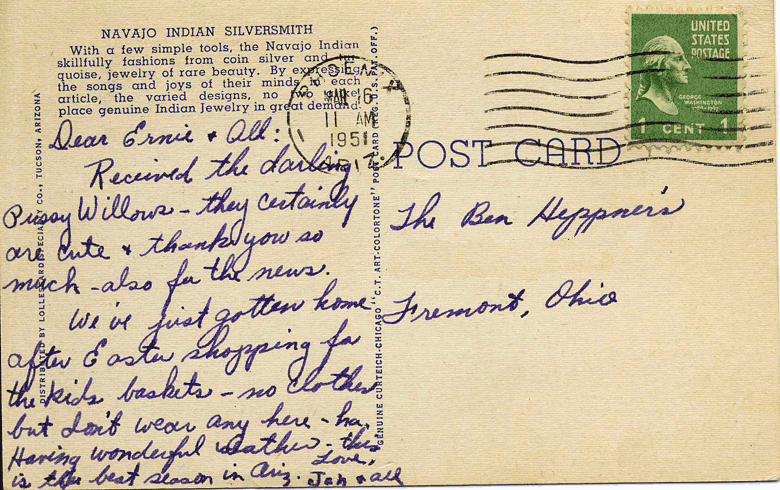 NAVAJO INDIAN SILVERSMITH
With a few simple tools, the Navajo Indian
skillfully fashions from coin silver and tur-
quoise, jewelry of rare beauty. By expressing
the songs and joys of their minds to each
article, the varied designs, no two alike,
place genuine Indian Jewelry in great demand.
PHOENIX
MAR 6
11 AM
1951
ARIZ.
UNITED
STATES
POSTAGE
GEORGE
WASHINGTON
1 CENT 1
POST CARD
Dear Ernie & All:
Received the darling
Pussy Willows - they certainly
are cute & thank you so
much - also for the news.
We've just gotten home
after Easter shopping for
the kids baskets - no clothes
but don't wear any here - ha.
Having wonderful weather - this
is the best season in Ariz.
Love,
Jan & all
The Ben Heppner's
Fremont, Ohio
DISTRIBUTED BY LOLLESGARD SPECIALTY CO., TUCSON, ARIZONA
GENUINE CURTEICH-CHICAGO "C.T. ART-COLORTONE" POST CARD (REG. U.S. PAT. OFF.)